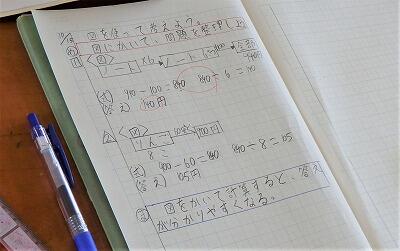 図を使って考えよう。
図にかいて、問題を整理しよ
①
〈図〉
ノート ×6 ノート
940円
(式) 940-100=840 840÷6=140
(答え) 140円
〈図〉
りんご 900円
8こ
(式) 900-60=840 840÷8=105
(答え) 105円
図をかいて計算すると、答え
が分かりやすくなる。